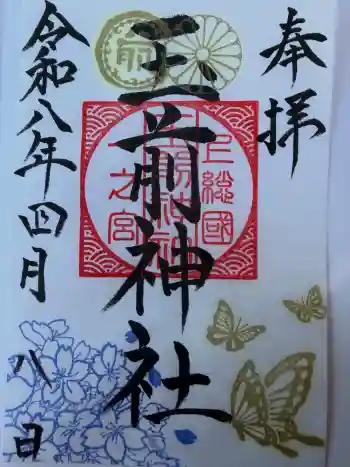 奉拝
上總國
一之宮
玉前神社
令和八年四月
八日